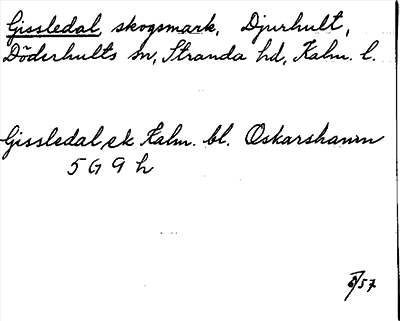 Gissledal, skogsmark, Djurhult,
Döderhults sn, Stranda hd, Kalm. l.
Gissledal ek Kalm. bl. Oskarshamn
5 G 9 h
57